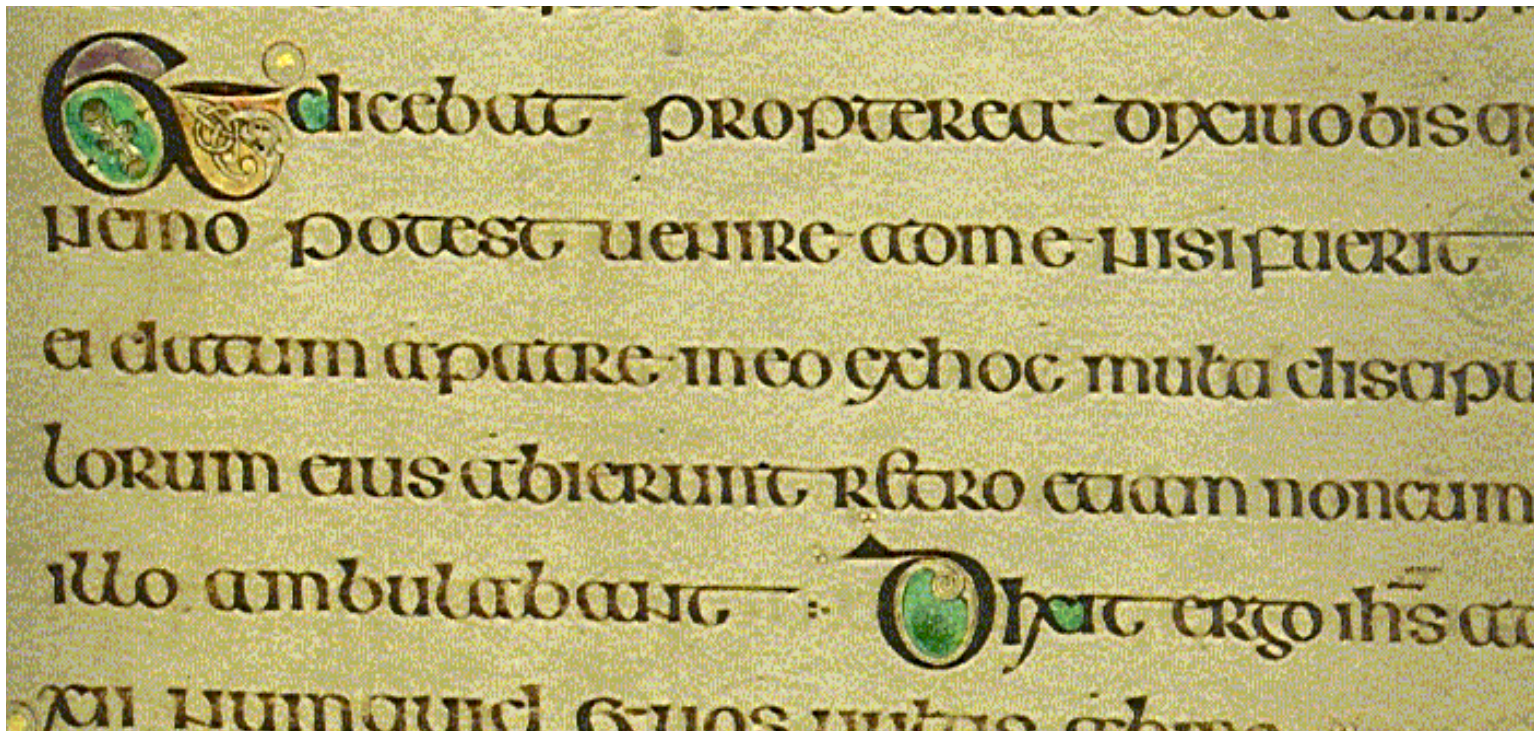 Et dicebat propterea dixi uobis
nemo potest uenire adme nisi fuerit
ei datum apatre meo exhoc multi discipu
lorum eius abierunt retro etiam noncum
illo ambulabant :· Dixit ergo ihs̄ ad
xii numquid et uos uultis abire